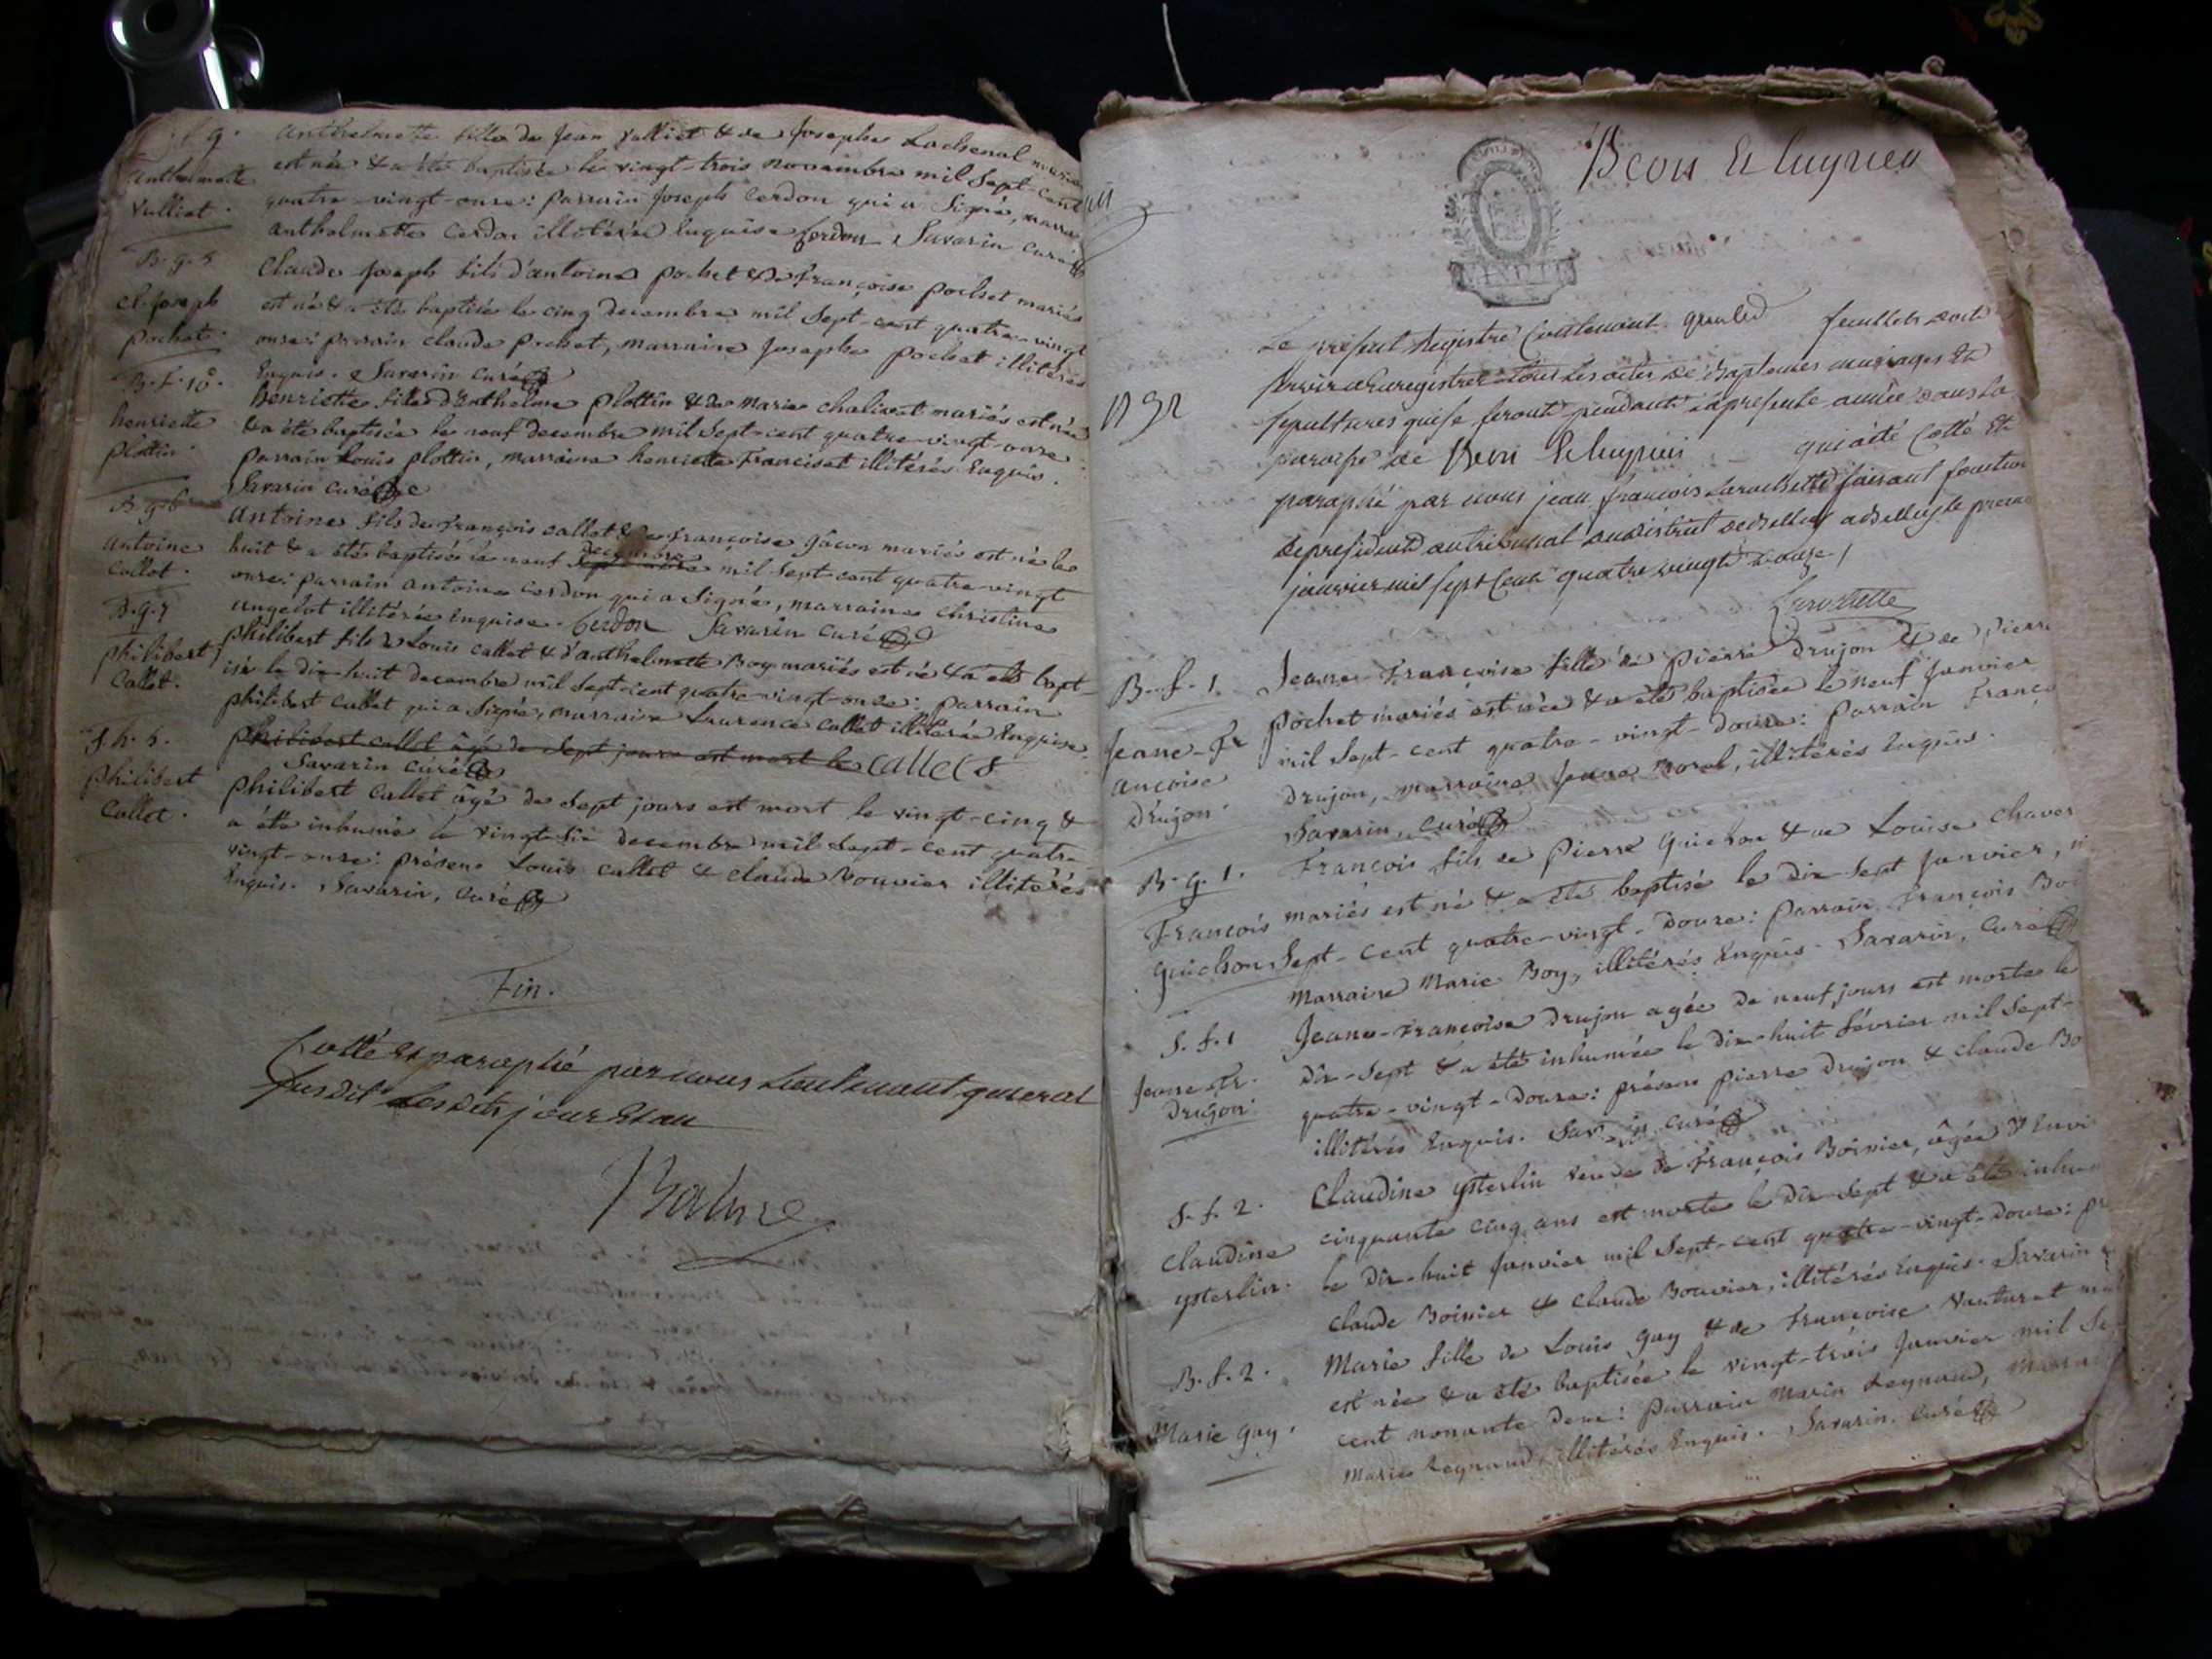 B. f. 9.
Anthelmette
Vulliet.
Anthelmette fille de Jean Vulliet & de Josephe Lachenal mariés
est née & a été baptisée le vingt-trois novembre mil Sept-cent
quatre-vingt-onze: parrain Joseph Cerdon qui a Signé, marraine
anthelmette Cerdon illitérée Enquise Cerdon Savarin curé
B. g. 5
Cl. Joseph
Pochet.
Claude Joseph fils d'antoine pochet & de Françoise pochet mariés
est né & a été baptisé le cinq decembre mil Sept-cent quatre-vingt
onze: parrain claude pochet, marraine Josephe pochet illitérés
Enquis. Savarin curé
B. f. 10.
henriette
plottin.
henriette fille d'Anthelme plottin & de Marie chalivet mariés est née
& a été baptisée le neuf decembre mil Sept-cent quatre-vingt-onze:
parrain Louis plottin, marraine henriette Franciset illitérés Enquis.
Savarin curé
B. g. 6
antoine
callet.
Antoine fils de François callet & de Françoise Jâcon mariés est né le
huit & a été baptisé le neuf decembre mil Sept-cent quatre-vingt
onze: parrain antoine cerdon qui a Signé, marraine christine
angelot illitérée Enquise. Cerdon Savarin curé
B. g. 7
philibert
Callet.
philibert fils de Louis callet & d'anthelmette Boy mariés est né & a été bapt-
isé le dix-huit decembre mil Sept-cent quatre-vingt-onze: parrain
philibert callet qui a Signé, marraine Laurence callet illitérée Enquise.
philibert callet âgé de Sept jours est mort le callet
Savarin curé
S. h. 5.
philibert
Callet.
philibert Callet âgé de Sept jours est mort le vingt-cinq &
a été inhumé le vingt-six decembre mil Sept-cent quatre-
vingt-onze: présens Louis callet & claude Bouvier illitérés
Enquis. Savarin, curé
Fin.
Cotté et paraphé par nous Lieutenant general
susdit Lesdits jour Et an
Balme
Beon Et Luyrieu
1792
Le présent Registre Contenant feuillets doit
servir a Enregistrer tous Les actes de Baptemes mariages Et
sepultures qui se feront pendant La presente année dans La
paroisse de Beon Et Luyrieu qui a été Cotté Et
paraphé par nous jean francois Larochette faisant fonction
de president au tribunal du district de Belley a Belley le premier
janvier mil sept Cent quatre vingt douze /
Larochette
B. f. 1.
Jeane-Fr
ançoise
Drujon.
Jeane-Françoise fille de Pierre Drujon & de Pierre
pochet mariés est née & a été baptisée le neuf Janvier
mil Sept-cent quatre-vingt-douze: parrain Franço
Drujon, marraine Jeane Morel, illitérés Enquis.
Savarin, curé
B. g. 1.
François
Guichon
François fils de Pierre Guichon & de Louise chaver
mariés est né & a été baptisé le dix-Sept Janvier,
Sept-cent quatre-vingt-douze: parrain François
marraine Marie Boy, illitérés Enquis. Savarin, Curé
S. f. 1
Jeane-Fr.
Drujon.
Jeane-Françoise Drujon agée de neuf jours est morte le
dix-Sept & a été inhumée le dix-huit février mil Sept-
quatre-vingt-douze: présens pierre Drujon & claude Bo
illitérés Enquis. Savarin curé
S. f. 2.
Claudine
ysterlin.
Claudine ysterlin veuve de François Boinier, âgée d'Envi
cinquante cinq ans est morte le dix-Sept & a été inhu
le dix-huit Janvier mil Sept-cent quatre-vingt-douze: pr
claude Boinier & claude Bouvier, illitérés Enquis. Savarin
B. f. 2.
Marie Guy.
Marie fille de Louis Guy & de Françoise Vauturet
est née & a été baptisée le vingt-trois Janvier mil Se
cent nonante deux: parrain Marin Reynaud, marrai
Marie Reynaud, illitérés Enquis. Savarin, Curé